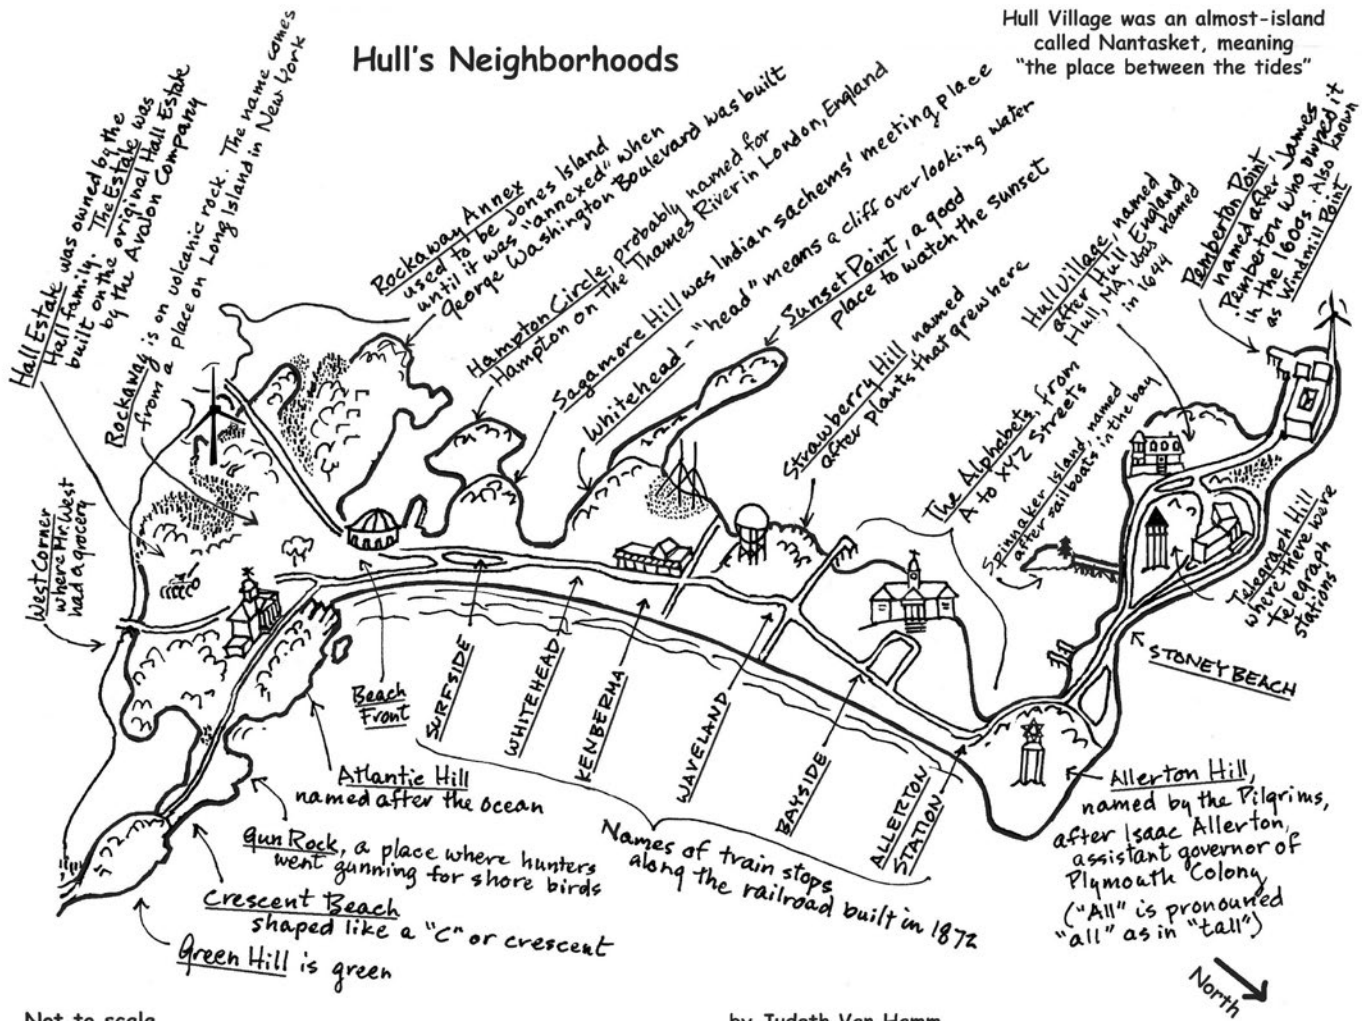 Hull's Neighborhoods
Hull Village was an almost-island
called Nantasket, meaning
"the place between the tides"
Hall Estate was owned by the
Hall family. The Estate was
built on the original Hall Estate
by the Avalon Company
Rockaway is on volcanic rock. The name comes
from a place on Long Island in New York
Rockaway Annex
used to be Jones Island
until it was "annexed" when
George Washington Boulevard was built
Hampton Circle, probably named for
Hampton on The Thames River in London, England
Sagamore Hill was Indian sachems' meeting place
Whitehead - "head" means a cliff overlooking water
Sunset Point, a good
place to watch the sunset
Strawberry Hill, named
after plants that grew here
The Alphabets, from
A to XYZ Streets
Spinnaker Island, named
after sailboats in the bay
Hull Village, named
after Hull, England
Hull, MA, was named
in 1644
Pemberton Point
named after James
Pemberton who owned it
in the 1600s. Also known
as Windmill Point
West Corner
where Mr. West
had a grocery
Telegraph Hill
where there were
Telegraph
stations
STONEY BEACH
Beach
Front
SURFSIDE
WHITEHEAD
KENBERMA
WAVELAND
BAYSIDE
ALLERTON
STATION
Names of train stops
along the railroad built in 1872
Atlantic Hill
named after the ocean
Gun Rock, a place where hunters
went gunning for shore birds
Crescent Beach
shaped like a "C" or crescent
Green Hill is green
Allerton Hill,
named by the Pilgrims,
after Isaac Allerton,
assistant governor of
Plymouth Colony
("All" is pronouned
"all" as in "tall")
North
Not to scale
by Judeth Van Hamm